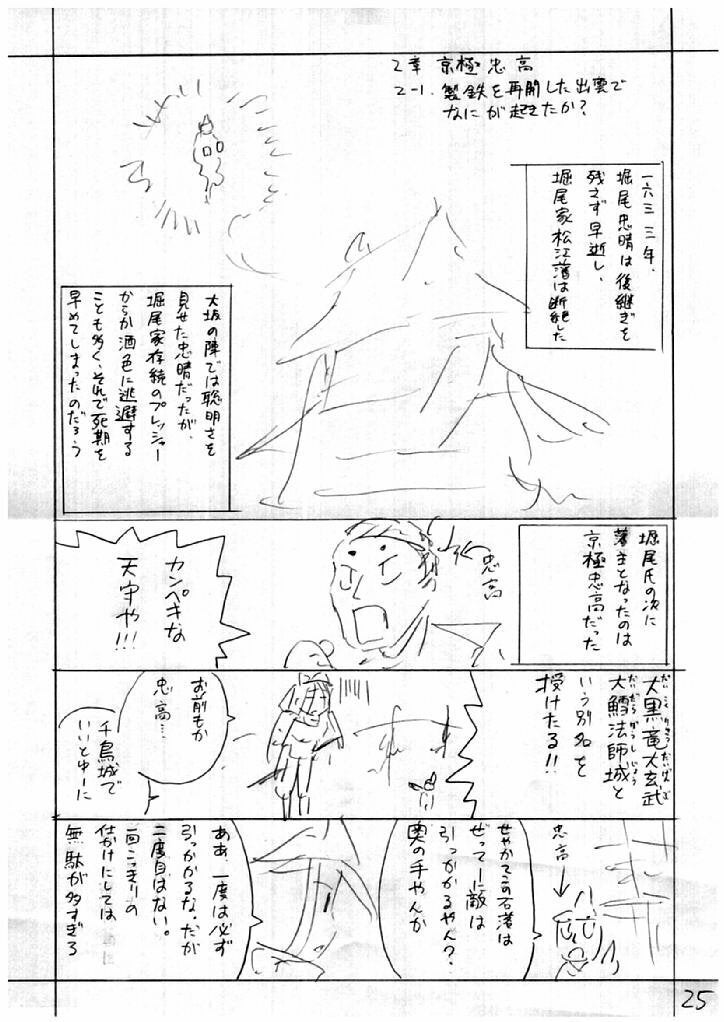 2章 京極忠高
2-1. 製鉄を再開した出雲で
なにが起きたか?
一六三三年、
堀尾忠晴は後継ぎを
残さず早逝し、
堀尾家松江藩は断絶した
大坂の陣では聡明さを
見せた忠晴だったが、
堀尾家存続のプレッシャー
からか酒色に逃避する
ことも多く、それで死期を
早めてしまったのだろう
堀尾氏の次に
藩主となったのは
京極忠高だった
忠高
カンペキな
天守や!!!
大黒竜大玄武
大鱈法師城と
いう別名を
授けたる!!
お前もか
忠高…
千鳥城で
いいとゆーに
忠高
せやかてこの石落は
ぜってー敵は
引っかかるやん?
奥の手やんか
ああ、一度は必ず
引っかかるな。だが
二度目はない。
一回こっきりの
仕かけにしては
無駄が多すぎる
25